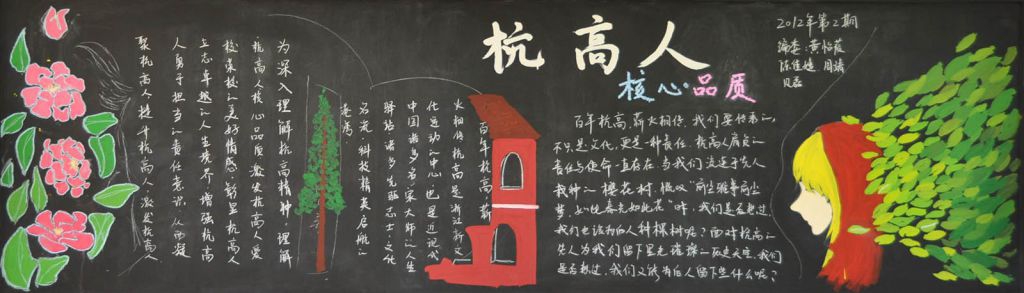 杭高人
核心品质
2012年第2期
编委：黄怡薇
陈佳婕 周靖
贝磊
为深入理解杭高精神，理解
杭高人核心品质，激发杭高人爱
校荣校的美好情感，彰显杭高人
立志卓越的人生境界，增强杭高
人勇于担当的责任意识，从而凝
聚杭高人，提升杭高人，激发杭高人
百年杭高，薪
火相传，杭高是浙江新文
化运动的中心，也是近现代
中国诸多名家大师的人生
驿站，诸多先驱志士文化
名流、科技精英启航的
港湾。
百年杭高，薪火相传，我们要传承的，
不只是文化，更是一种责任。杭高人肩负的
责任与使命一直存在。当我们流连于先人
栽种的樱花树，慨叹
我们也该为后人种棵树呢？面对杭高的
先人为我们留下星光璀璨的
是否想过，我们又能为后人留下些什么呢？